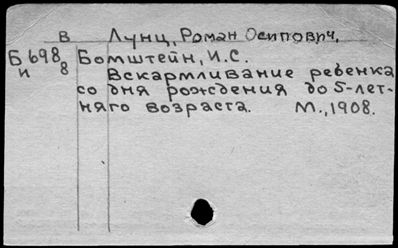 в Лунц, Роман Осипович.
Б698 Бомштейн, И.С.
и 8 Вскармливание ребенка
со дня рождения до 5-лет-
няго возраста. М., 1908.